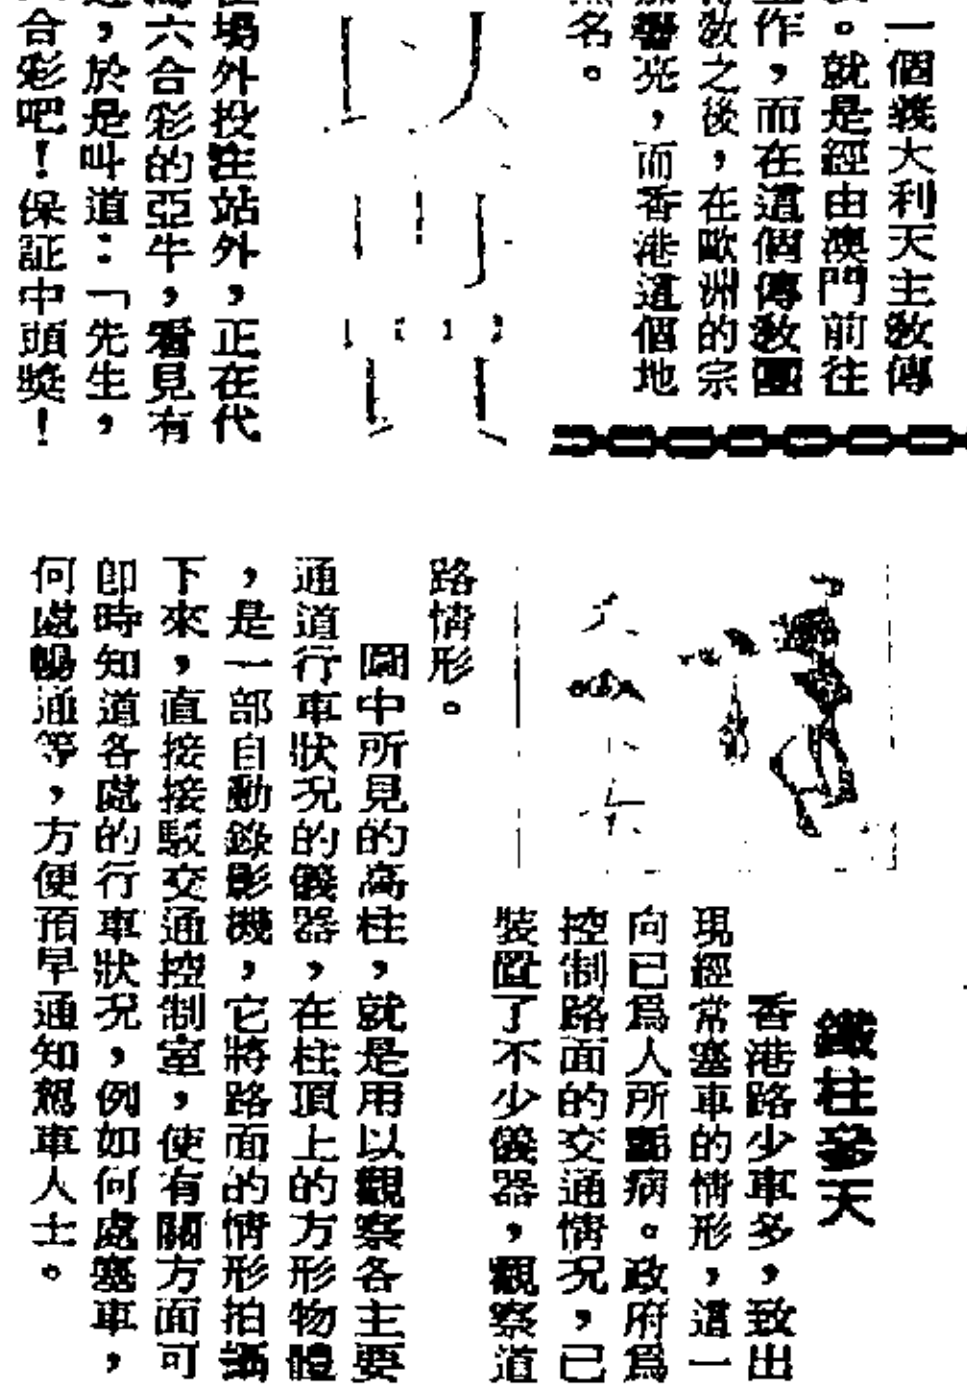 一個義大利天主教傳
。就是經由澳門前往
作，而在這個傳教團
教之後，在歐洲的宗
響亮，而香港這個地
名。
場外投注站外，正在代
六合彩的亞牛，看見有
，於是叫道：「先生，
合彩吧！保証中頭獎！
鐵柱參天
香港路少車多，致出
現經常塞車的情形，這一
向已爲人所詬病。政府爲
控制路面的交通情況，已
裝置了不少儀器，觀察道
路情形。
圖中所見的高柱，就是用以觀察各主要
通道行車狀況的儀器，在柱頂上的方形物體
，是一部自動錄影機，它將路面的情形拍攝
下來，直接接駁交通控制室，使有關方面可
即時知道各處的行車狀況，例如何處塞車，
何處暢通等，方便預早通知駕車人士。